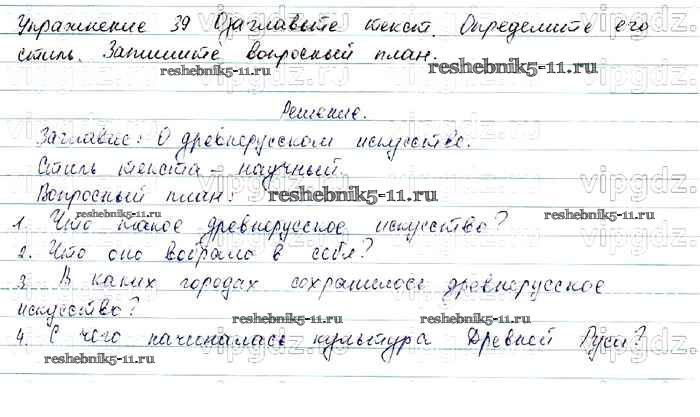 Упражнение 39 Озаглавьте текст. Определите его
стиль. Запишите вопросный план.
reshebnik5-11.ru reshebnik5-11.ru
Решение.
Заглавие: О древнерусском искусстве.
Стиль текста – научный.
Вопросный план: reshebnik5-11.ru
reshebnik5-11.ru reshebnik5-11.ru
1. Что такое древнерусское искусство?
2. Что оно вобрало в себя?
3. В каких городах сохранилось древнерусское
искусство?
reshebnik5-11.ru reshebnik5-11.ru
4. С чего начиналась культура Древней Руси?
reshebnik5-11.ru